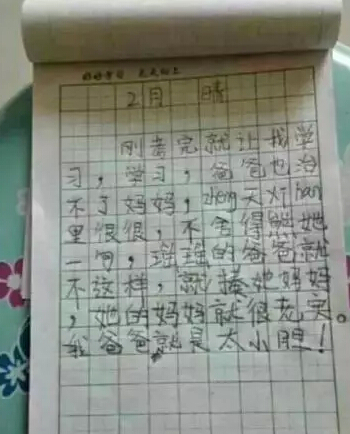 好好学习 天天向上
2月 晴
刚考完就让我学
习，学习，爸爸也治
不了妈妈，zheng天 han
里很很，不舍得 她
一句，瑶瑶的爸爸就
不这样，就揍她妈妈
，她的妈妈就很老实。
我爸爸就是太小胆！